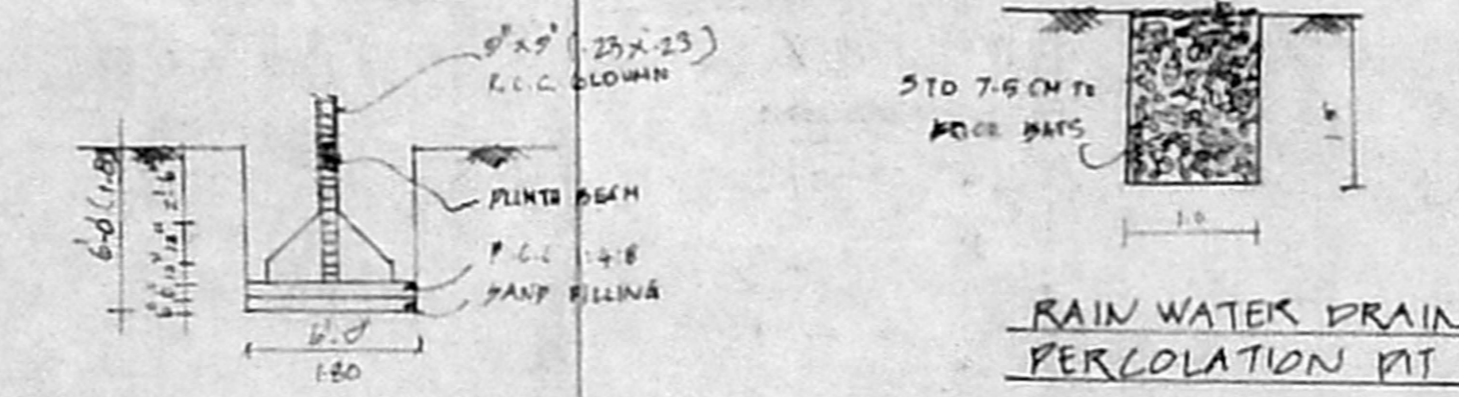 9" x 9" (.23 x .23)
R.C.C. COLUMN
PLINTH BEAM
P.C.C 1:4:8
SAND FILLING
6'-0 (1.8)
2'-6"
6'-0"
1.80
5 TO 7.5 CM TO
BRICK BATS
1.0
RAIN WATER DRAIN
PERCOLATION PIT